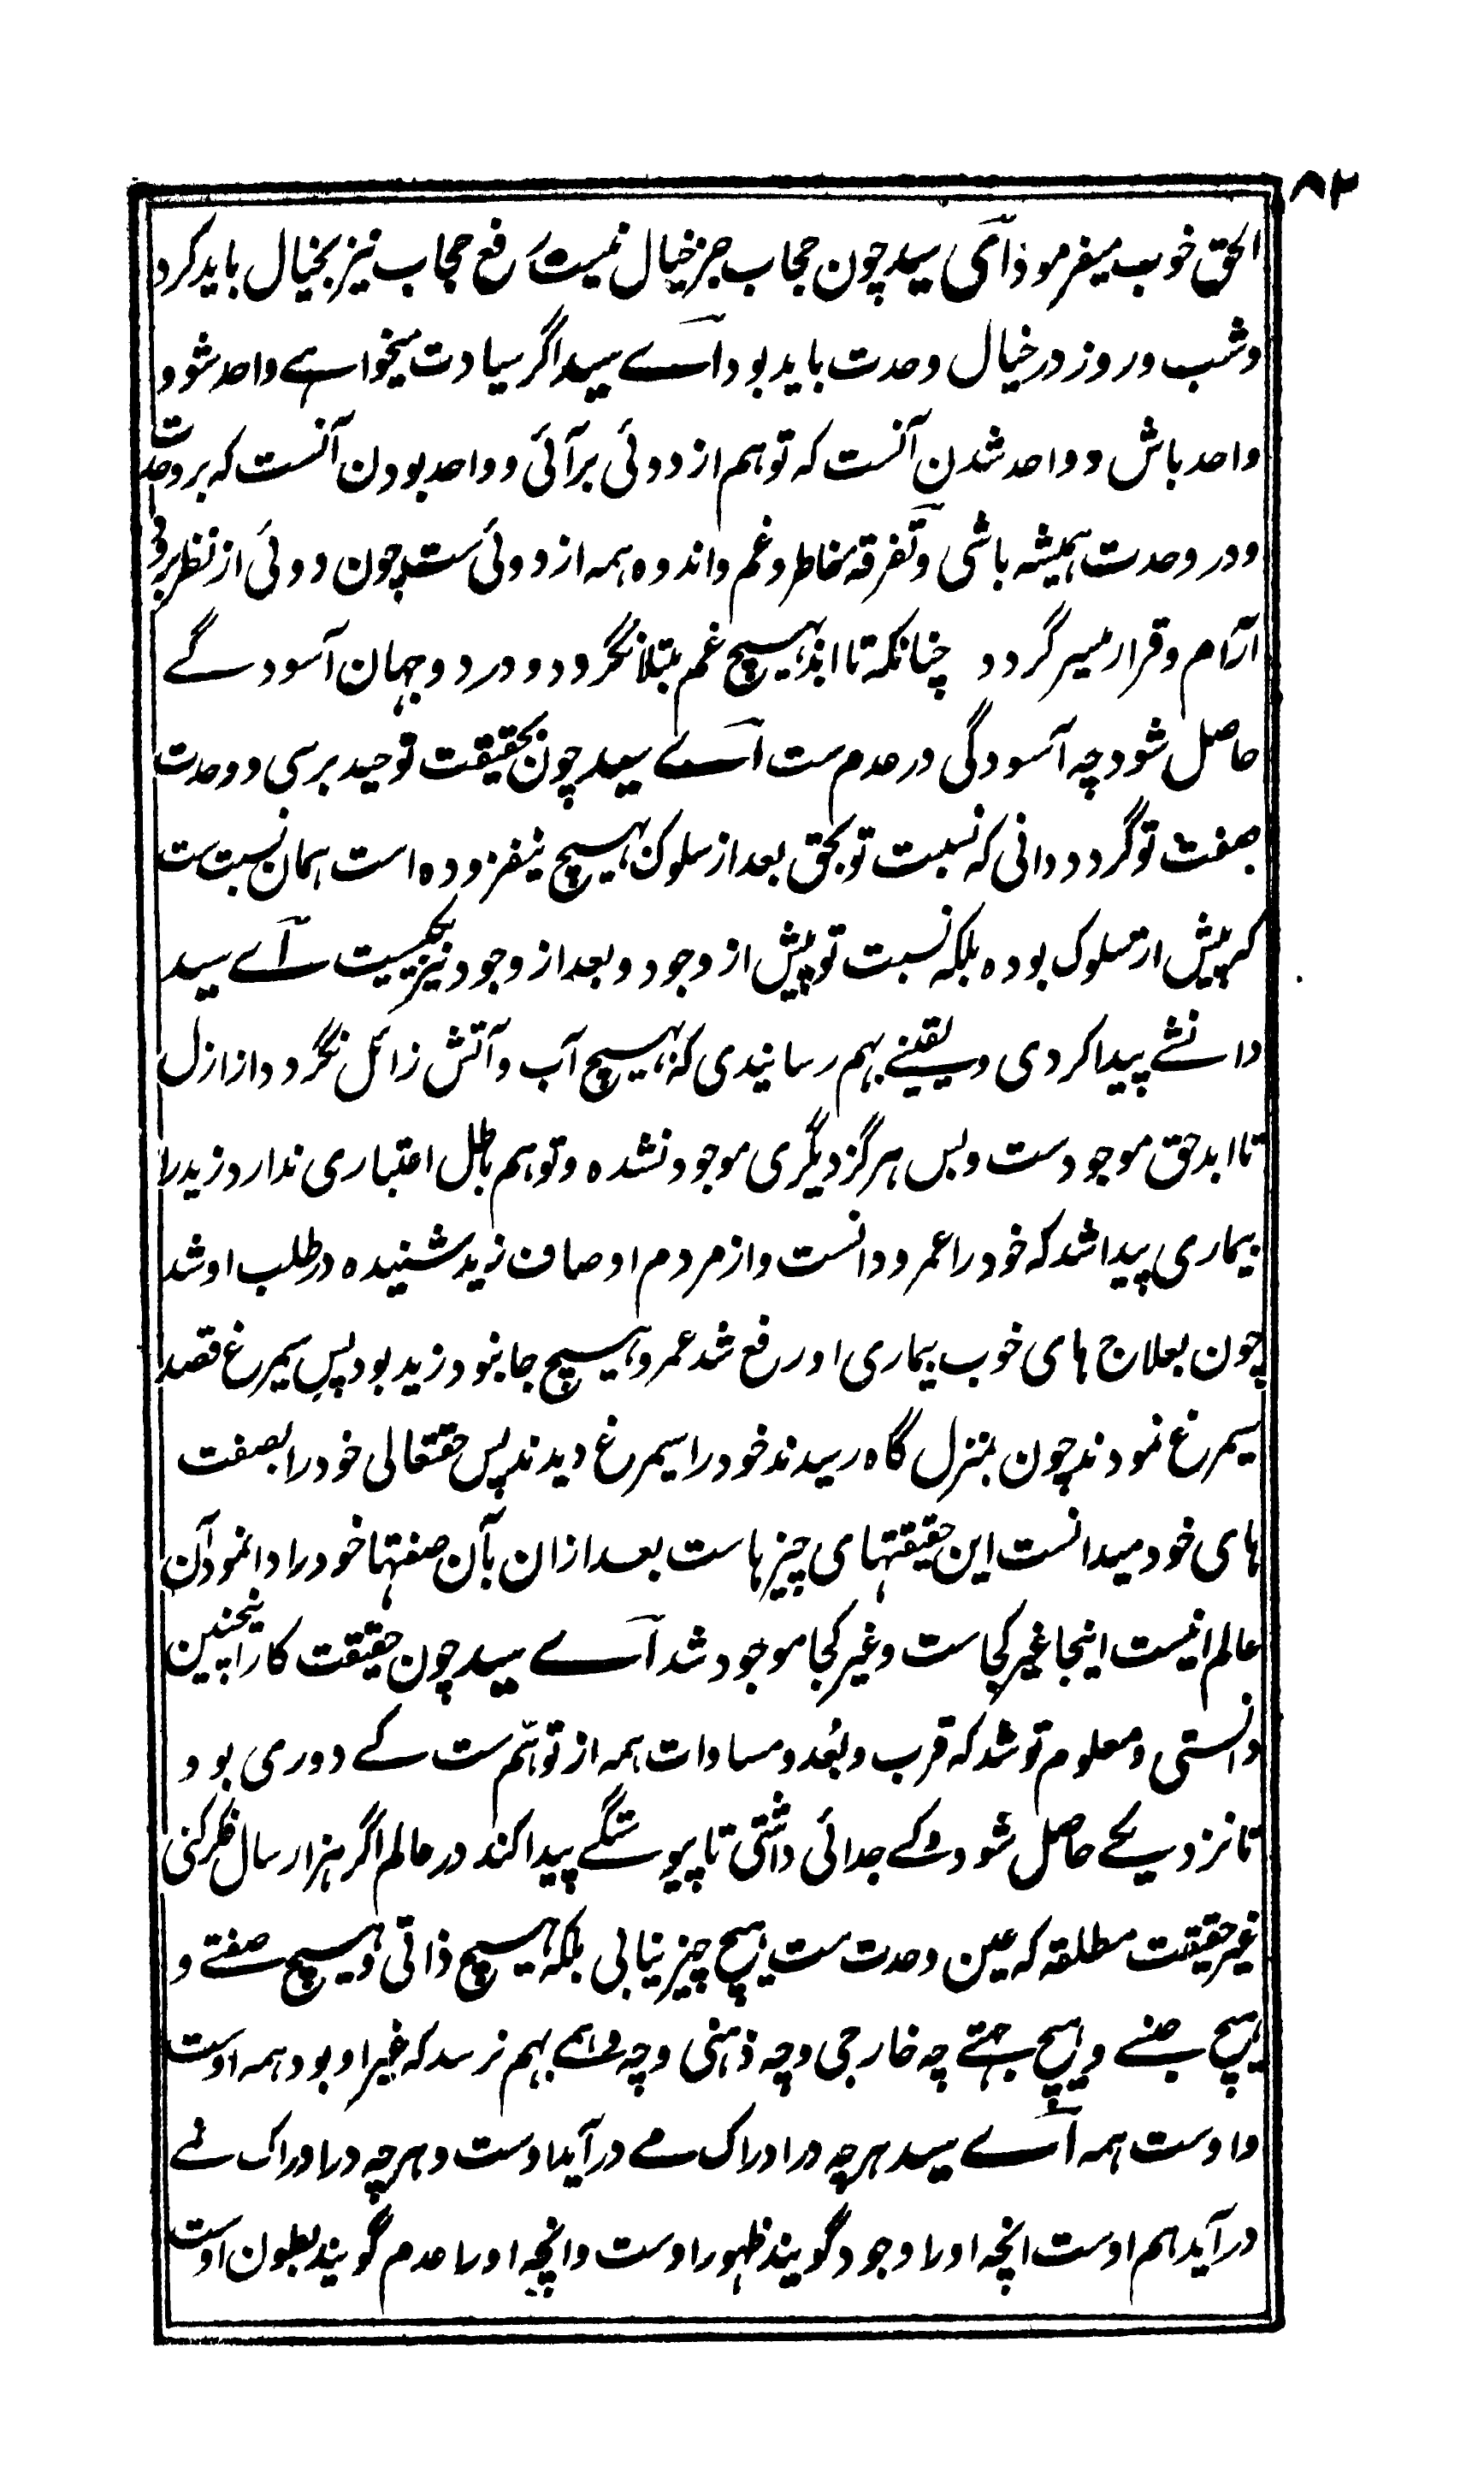 ۸۲
الحق خوب میفرمود آی سید چون حجاب جز خیال نیست رفع حجاب نیز بخیال باید کرد
و شب و روز در خیال وحدت باید بود آے سید اگر سیادت میخواہے واحد شو و
واحد باش و واحد شدن آنست که توہم از دوئی برآئی و واحد بودن آنست که بر وحدت
و در وحدت ہمیشہ باشی و تفرقہ بخاطر و غم و اندوہ ہمہ از دوئی ست چون دوئی از نظر برود
آرام و قرار میسر گردد چنانکہ تا ابد بہیچ غم مبتلا نگردد و در دو جہان آسودگے
حاصل شود چہ آسودگی در عدم ست آے سید چون بحقیقت توحید برسی و وحدت
صفت تو گردد دانی که نسبت تو بحق بعد از سلوک ہیچ نیفزوده است ہمان نسبت ست
کہ پیش از سلوک بوده بلکہ نسبت تو پیش از وجود و بعد از وجود نیز یکیست آے سید
دانشے پیدا کردی و یقینے بہم رسانیدی کہ بہیچ آب و آتش زائل نگردد از ازل
تا ابد حق موجودست و بس ہرگز دیگری موجود نشدہ و توہم باطل اعتباری ندارد زید را
بیماری پیدا شد کہ خود را عمرو دانست و از مردم اوصاف زید شنیدہ در طلب او شد
چون بعلاج ہای خوب بیماری او رفع شد عمرو ہیچ جا نبود زید بود پس سیمرغ قصد
سیمرغ نمودند چون بمنزل گاہ رسیدند خود را سیمرغ دیدند پس حقتعالی خود را بصفت
ہای خود میدانست این حقیقتہای چیزہا ست بعد ازان بآن صفتہا خود را وا نمود آن
عالم اینست اینجا غیر کجاست و غیر کجا موجود شد آے سید چون حقیقت کار را چنین
دانستی و معلوم تو شد کہ قرب و بُعد و مساوات ہمہ از توہّم ست کے دوری بود
تا نزدیکے حاصل شود و کے جدائی داشتی تا پیوستگے پیدا کند در عالم اگر ہزار سال فکر کنی
غیر حقیقت مطلقہ کہ عین وحدت ست ہیچ چیز نیابی بلکہ ہیچ ذاتی و ہیچ صفتے و
ہیچ جنسے و ہیچ جہتے چہ خارجی و چہ ذہنی و چہ وہمے بہم نرسد کہ غیر او بود ہمہ اوست
و اوست ہمہ آے سید ہرچہ در ادراک مے درآید اوست و ہرچہ در ادراک نے
درآید ہم اوست انچہ او را وجود گویند ظہور اوست و انچہ او را عدم گویند بطون اوست